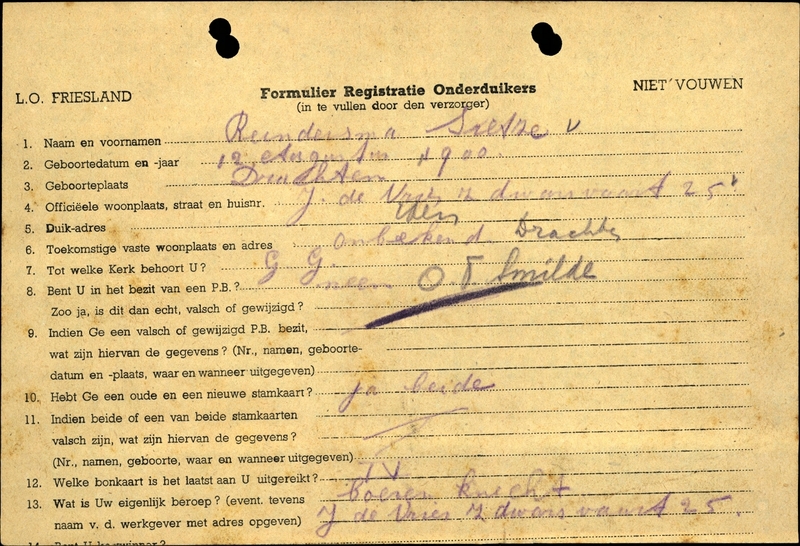 L.O. FRIESLAND
Formulier Registratie Onderduikers
NIET VOUWEN
(in te vullen door den verzorger)
1. Naam en voornamen Reindersma Sietze v
2. Geboortedatum en -jaar 12 Augustus 1900
3. Geboorteplaats Drachten
4. Officiëele woonplaats, straat en huisnr. J. de Vries, Z dwarsvaart 25
5. Duik-adres
6. Toekomstige vaste woonplaats en adres onbekend Drachten
7. Tot welke Kerk behoort U? G G.
8. Bent U in het bezit van een P.B.? neen O T Smilde
Zoo ja, is dit dan echt, valsch of gewijzigd?
9. Indien Ge een valsch of gewijzigd P.B. bezit,
wat zijn hiervan de gegevens? (Nr., namen, geboorte-
datum en -plaats, waar en wanneer uitgegeven)
10. Hebt Ge een oude en een nieuwe stamkaart? ja beide
11. Indien beide of een van beide stamkaarten
valsch zijn, wat zijn hiervan de gegevens?
(Nr., namen, geboorte, waar en wanneer uitgegeven)
12. Welke bonkaart is het laatst aan U uitgereikt?
13. Wat is Uw eigenlijk beroep? (event. tevens boeren knecht
naam v. d. werkgever met adres opgeven) J de Vries Z dwarsvaart 25.
14. Bent U kostwinner?